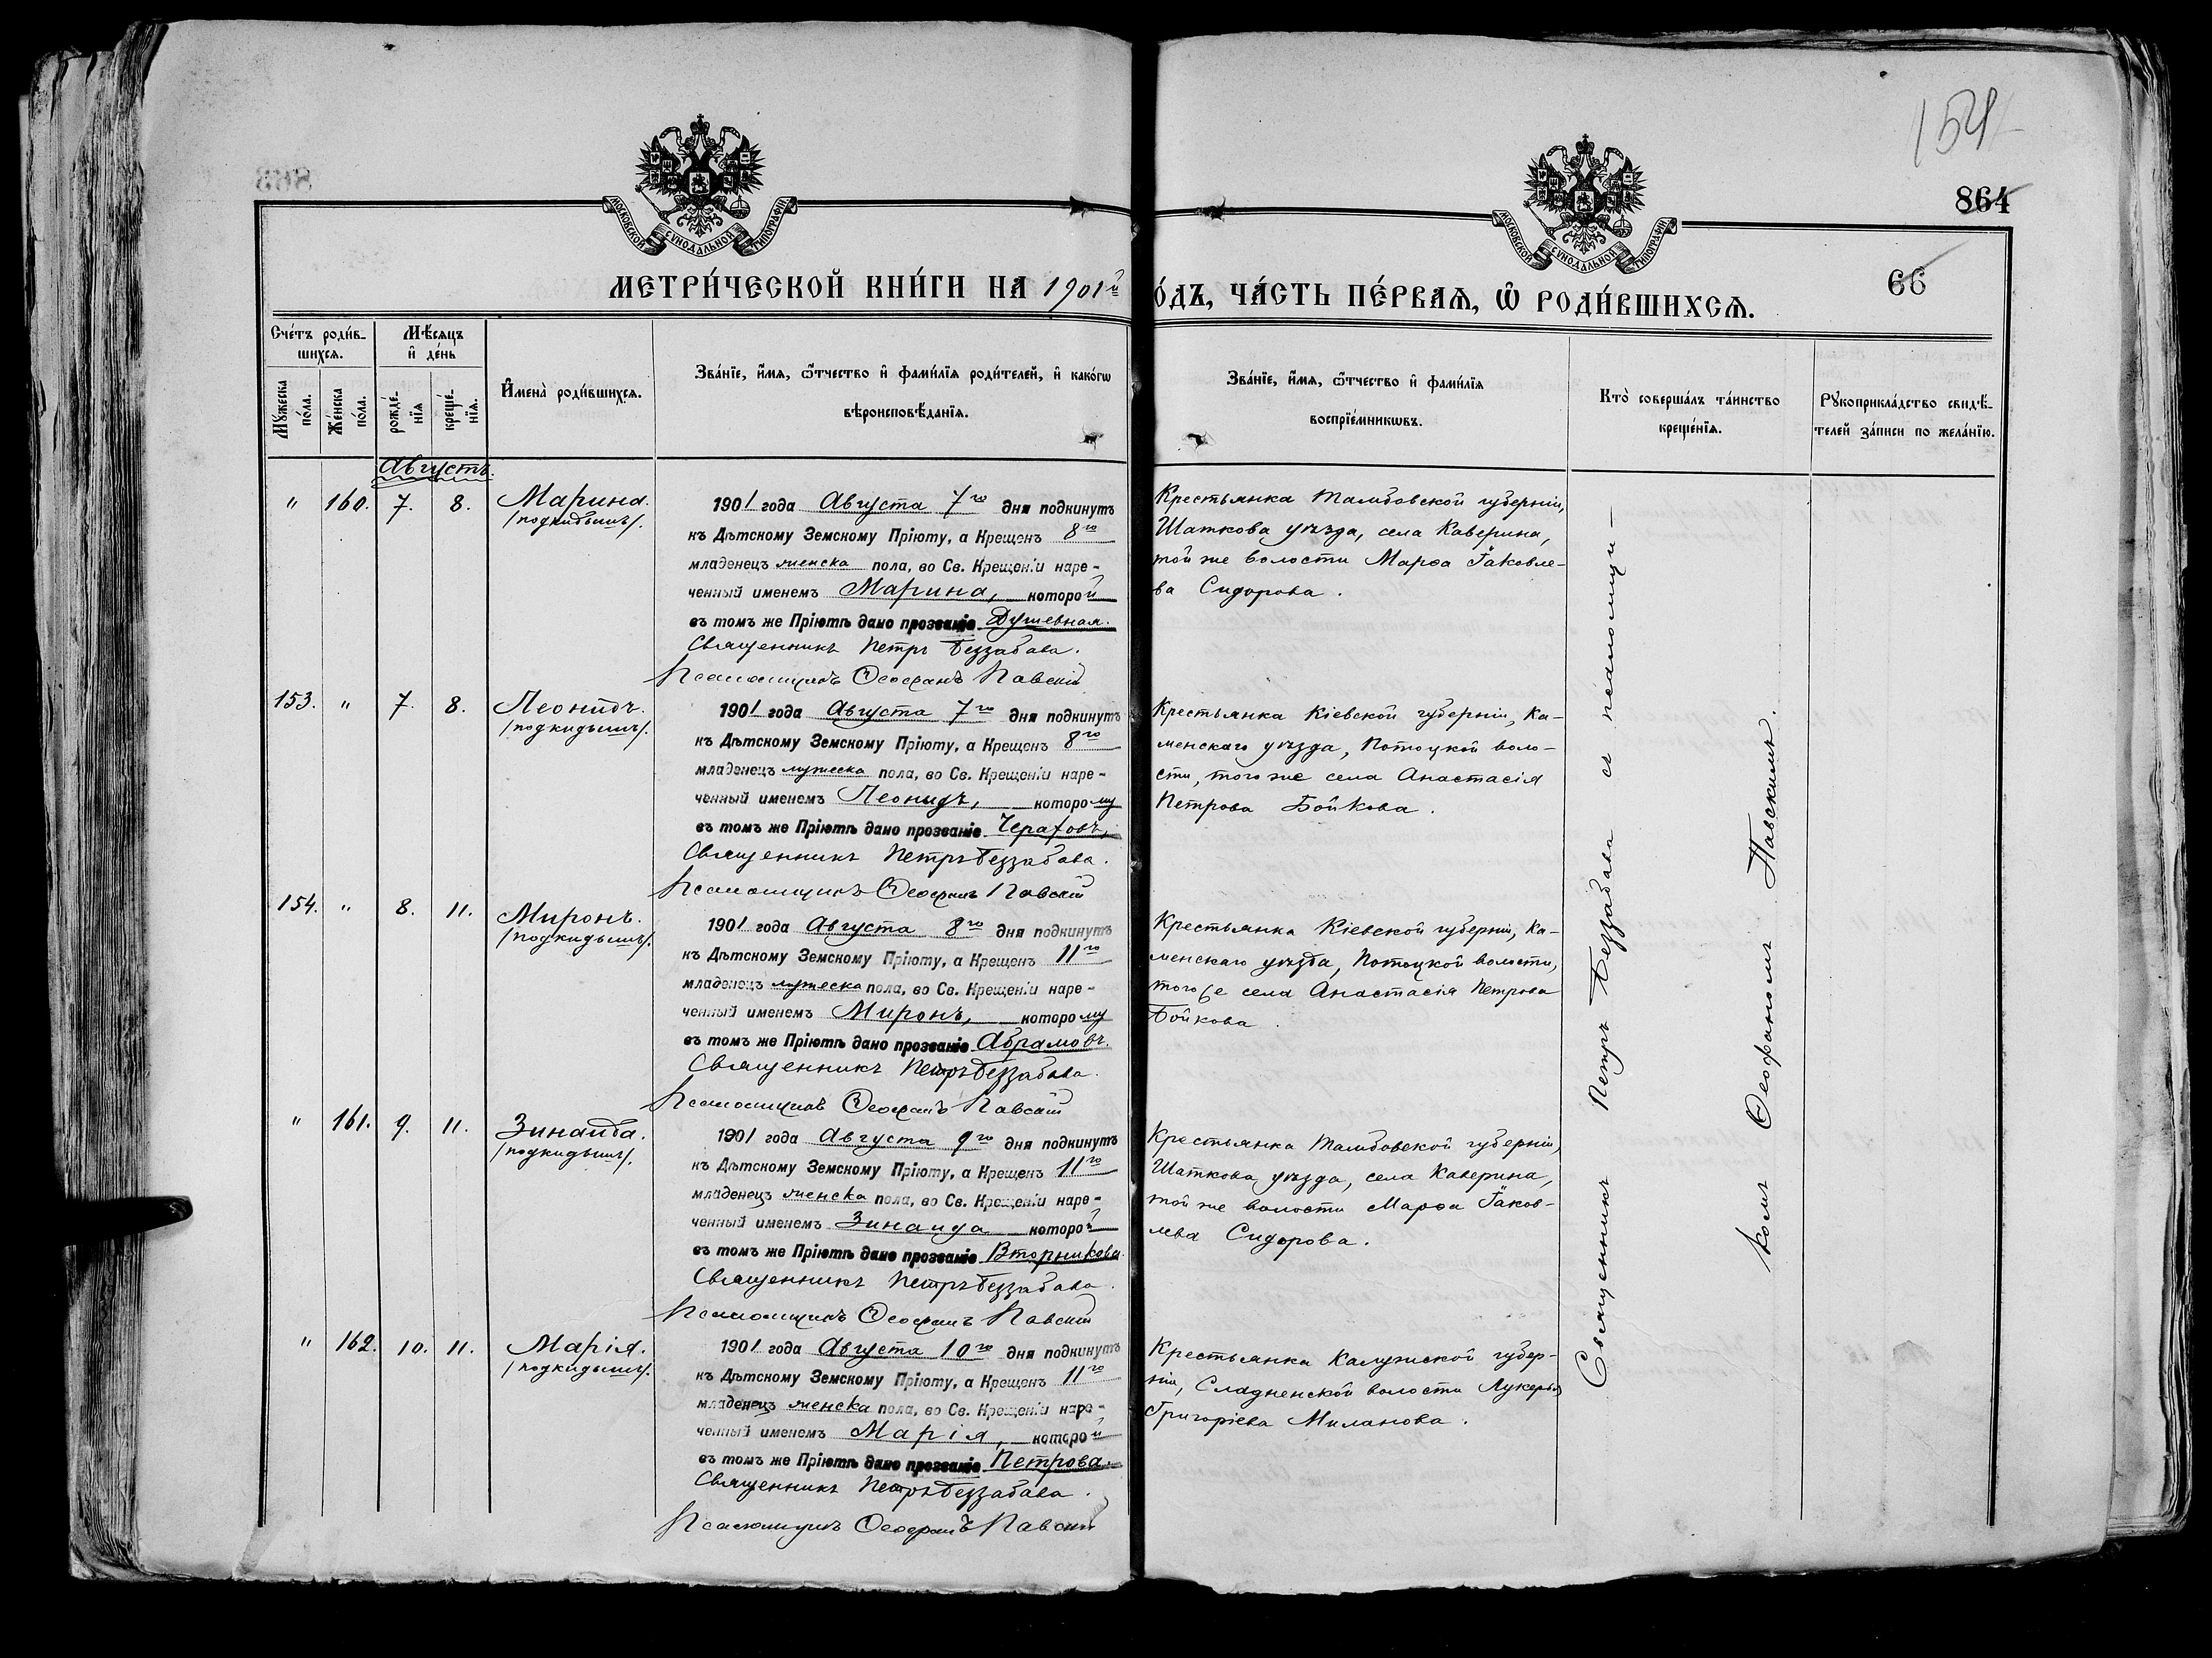 154
864
66
МОСКОВСКОЙ СѴНОДАЛЬНОЙ ТИПОГРАФІИ
МОСКОВСКОЙ СѴНОДАЛЬНОЙ ТИПОГРАФІИ
МЕТРИ́ЧЕСКОЙ КНИ́ГИ НА 1901й
О́ДЪ, ЧА́СТЬ ПЕ́РВАѦ, Ѿ РОДИ́ВШИХСѦ.
Сче́тъ роди́в-
шихсѧ.
Мꙋ́жеска
по́ла.
Же́нска
по́ла.
Мѣ́сѧцъ
и҆ де́нь
рожде́-
нїѧ
креще́-
нїѧ.
И҆мена̀ роди́вшихсѧ.
Зва́нїе, и҆́мѧ, ѻ҆́тчество и҆ фами́лїѧ роди́телей, и҆ како́гѡ
вѣроисповѣ́данїѧ.
Зва́нїе, и҆́мѧ, ѻ҆́тчество и҆ фами́лїѧ
воспрїе́мникѡвъ.
Кто̀ соверша́лъ та́инство
креще́нїѧ.
Рꙋкоприкла́дство свидѣ́-
телей за́писи по жела́нїю.
Августъ.
" 160. 7. 8. Марина.
/подкидышъ/.
1901 года Августа 7го дня подкинутъ
къ Дѣтскому Земскому Пріюту, а Крещенъ 8го
младенецъ женска пола, во Св. Крещеніи наре-
ченный именемъ Марина, которой
въ томъ же Пріютѣ дано прозваніе Душевная.
Священникъ Петръ Беззабава.
Псаломщикъ Ѳеофанъ Павскій
Крестьянка Тамбовской губерніи,
Шаткова уѣзда, села Каверина,
той же волости Марѳа Іаковле-
ва Сидорова.
153. " 7. 8. Леонидъ.
/подкидышъ/.
1901 года Августа 7го дня подкинутъ
къ Дѣтскому Земскому Пріюту, а Крещенъ 8го
младенецъ мужеска пола, во Св. Крещеніи наре-
ченный именемъ Леонидъ, которому
въ томъ же Пріютѣ дано прозваніе Черховъ,
Священникъ Петръ Беззабава.
Псаломщикъ Ѳеофанъ Павскій
Крестьянка Кіевской губерніи, Ка-
менскаго уѣзда, Потоцкой воло-
сти, того же села Анастасія
Петрова Бойкова.
154. " 8. 11. Миронъ.
/подкидышъ/.
1901 года Августа 8го дня подкинутъ
къ Дѣтскому Земскому Пріюту, а Крещенъ 11го
младенецъ мужеска пола, во Св. Крещеніи наре-
ченный именемъ Миронъ, которому
въ томъ же Пріютѣ дано прозваніе Абрамовъ.
Священникъ Петръ Беззабава.
Псаломщикъ Ѳеофанъ Павскій
Крестьянка Кіевской губерніи, Ка-
менскаго уѣзда, Потоцкой волости,
того же села Анастасія Петрова
Бойкова.
" 161. 9. 11. Зинаида.
/подкидышъ/.
1901 года Августа 9го дня подкинутъ
къ Дѣтскому Земскому Пріюту, а Крещенъ 11го
младенецъ женска пола, во Св. Крещеніи наре-
ченный именемъ Зинаида которой
въ томъ же Пріютѣ дано прозваніе Вторникова.
Священникъ Петръ Беззабава.
Псаломщикъ Ѳеофанъ Павскій
Крестьянка Тамбовской губерніи,
Шаткова уѣзда, села Каверина,
той же волости Марѳа Іаков-
лева Сидорова.
" 162. 10. 11. Марія.
/подкидышъ/.
1901 года Августа 10го дня подкинутъ
къ Дѣтскому Земскому Пріюту, а Крещенъ 11го
младенецъ женска пола, во Св. Крещеніи наре-
ченный именемъ Марія, которой
въ томъ же Пріютѣ дано прозваніе Петрова.
Священникъ Петръ Беззабава.
Псаломщикъ Ѳеофанъ Павскій
Крестьянка Калужской губер-
ніи, Сладненской волости Лукерья
Григоріева Миланова.
Священникъ Петръ Беззабава съ псаломщи-
комъ Ѳеофаномъ Павскимъ.